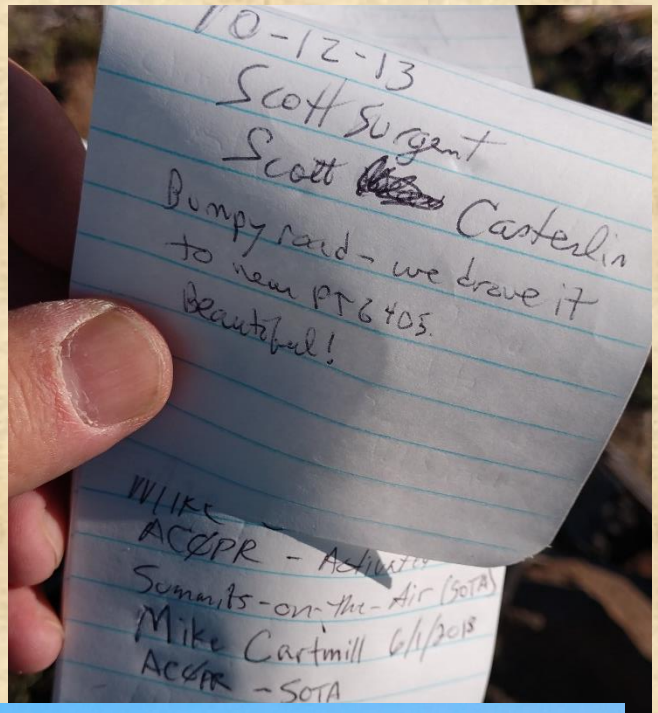 10-12-13
Scott Surgent
Scott Casterlin
Bumpy road - we drove it
to near PT 6405.
Beautiful!
Mike
AC0PR - Activate
Summits-on-the-Air (SOTA)
Mike Cartmill 6/1/2018
AC0PR - SOTA